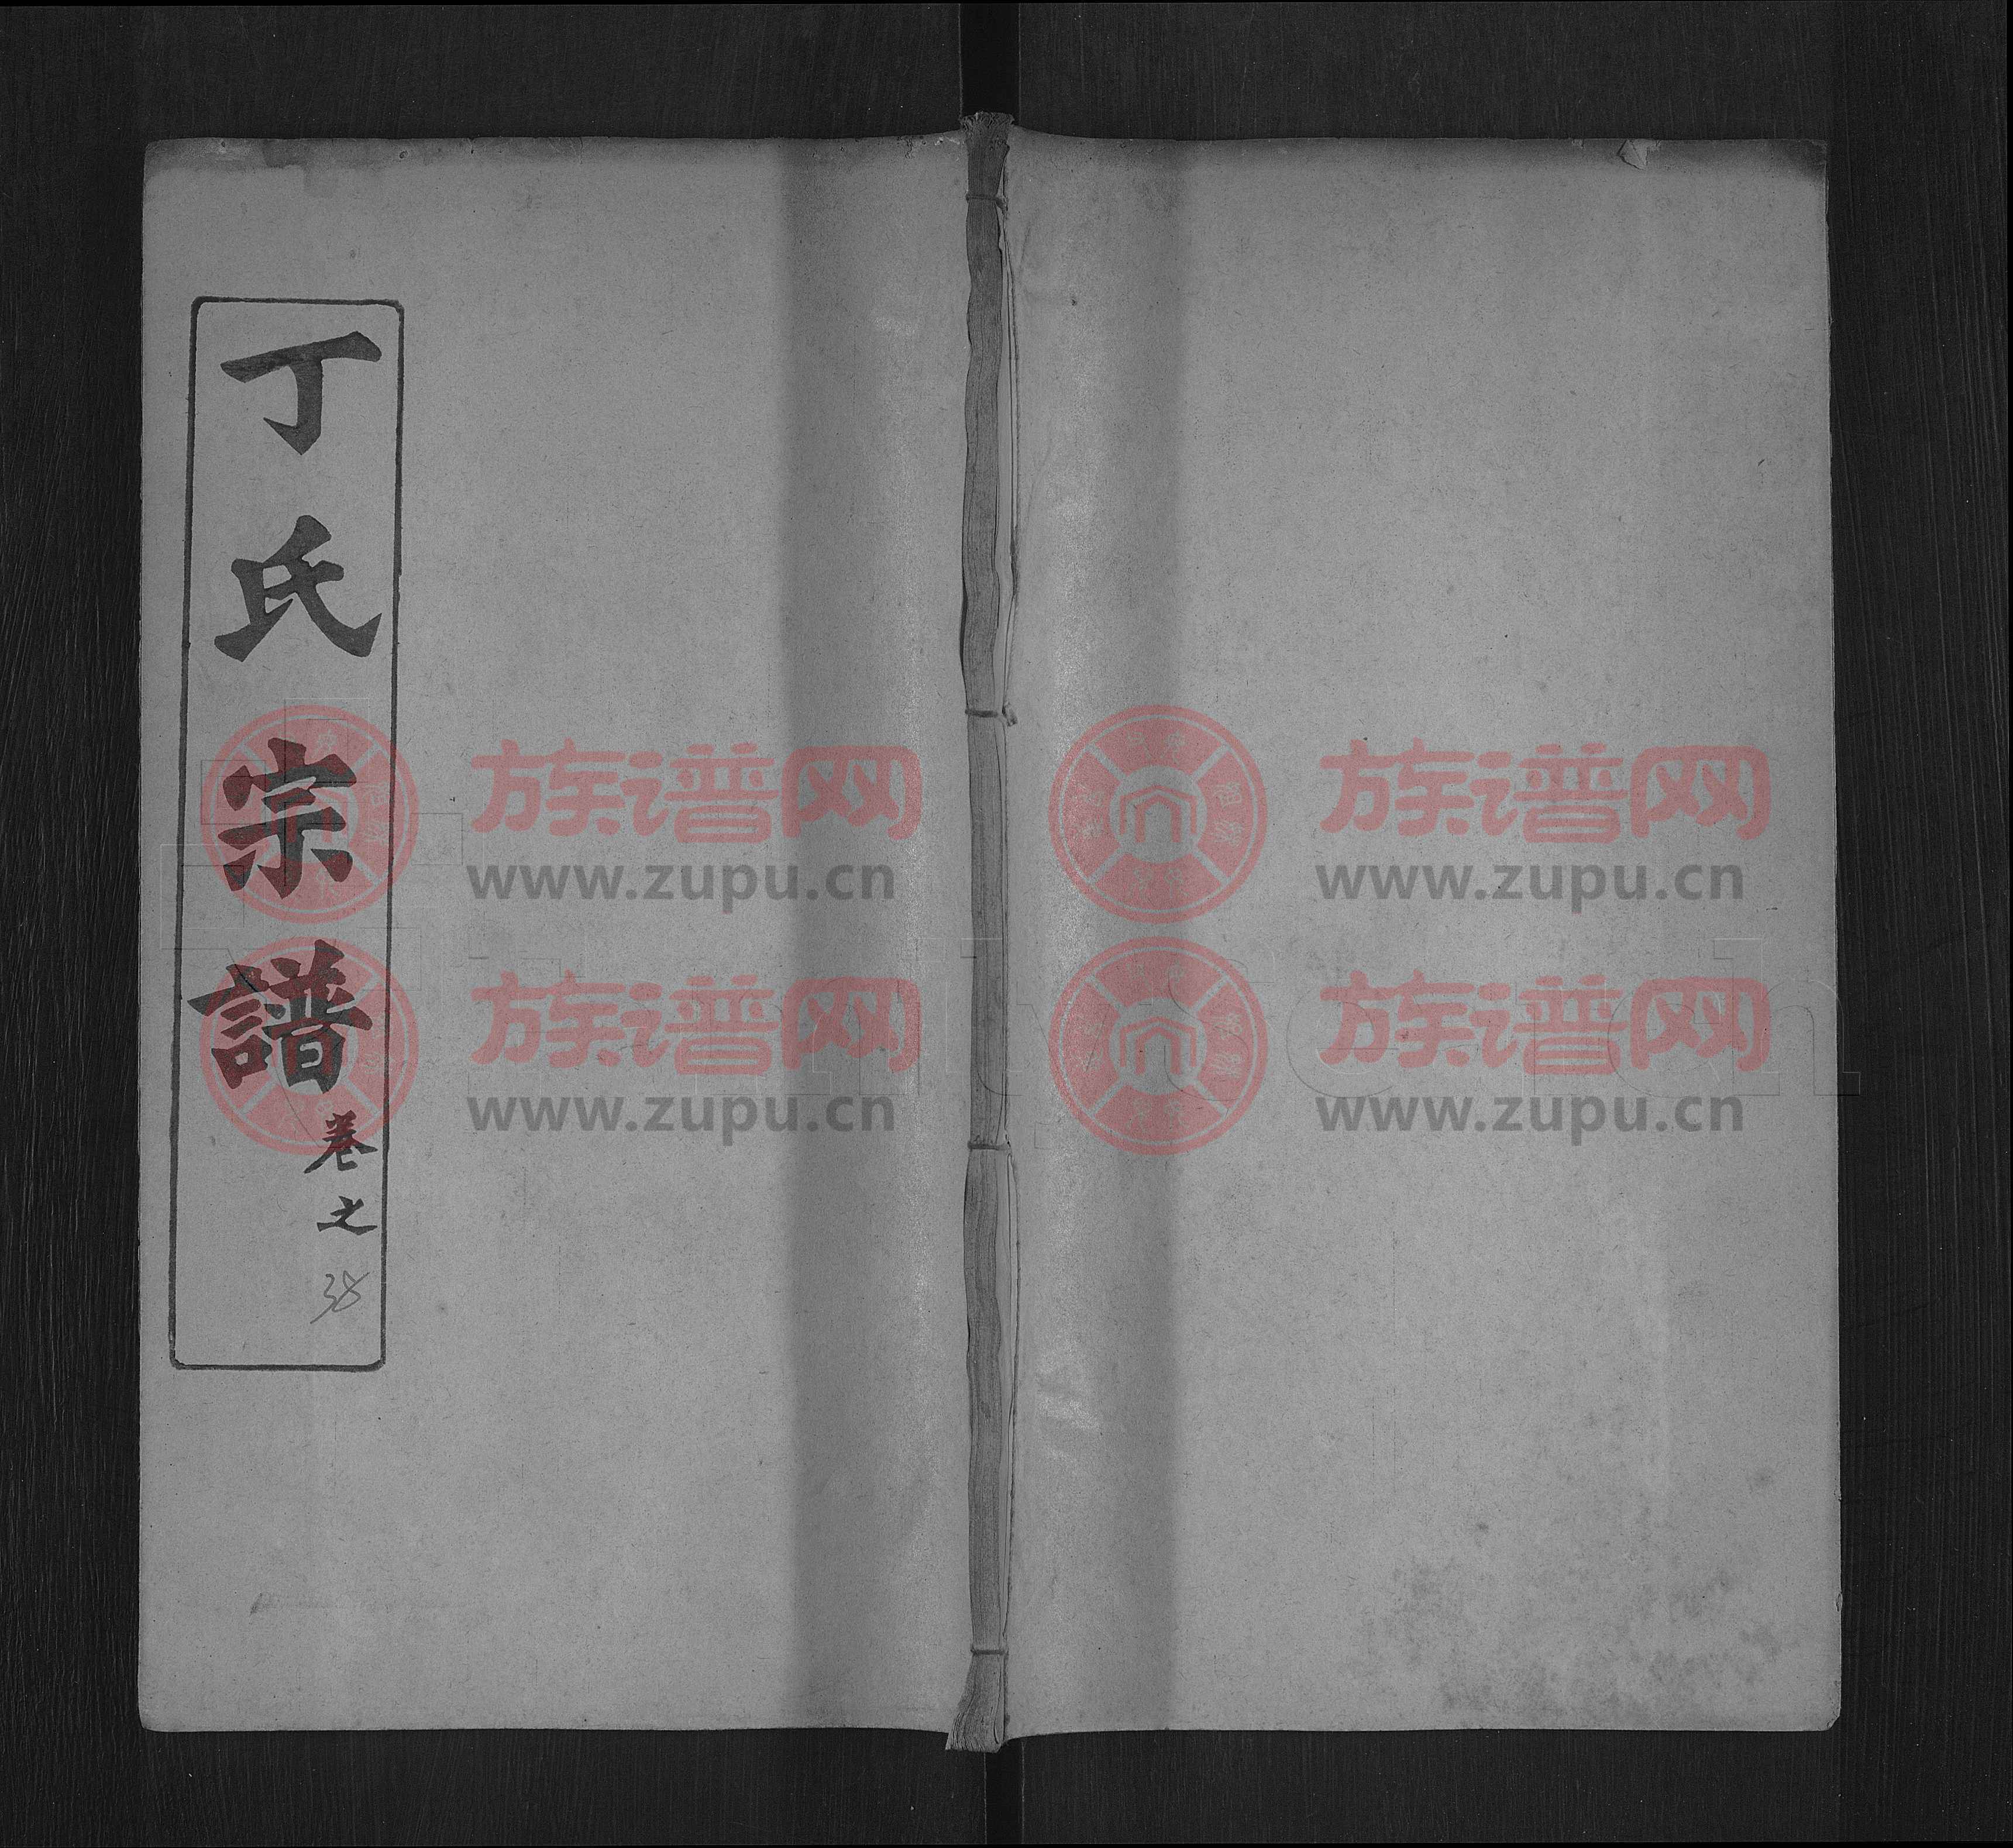 丁氏宗譜
卷之
38
族谱网
www.zupu.cn
族谱网
www.zupu.cn
族谱网
www.zupu.cn
族谱网
www.zupu.cn